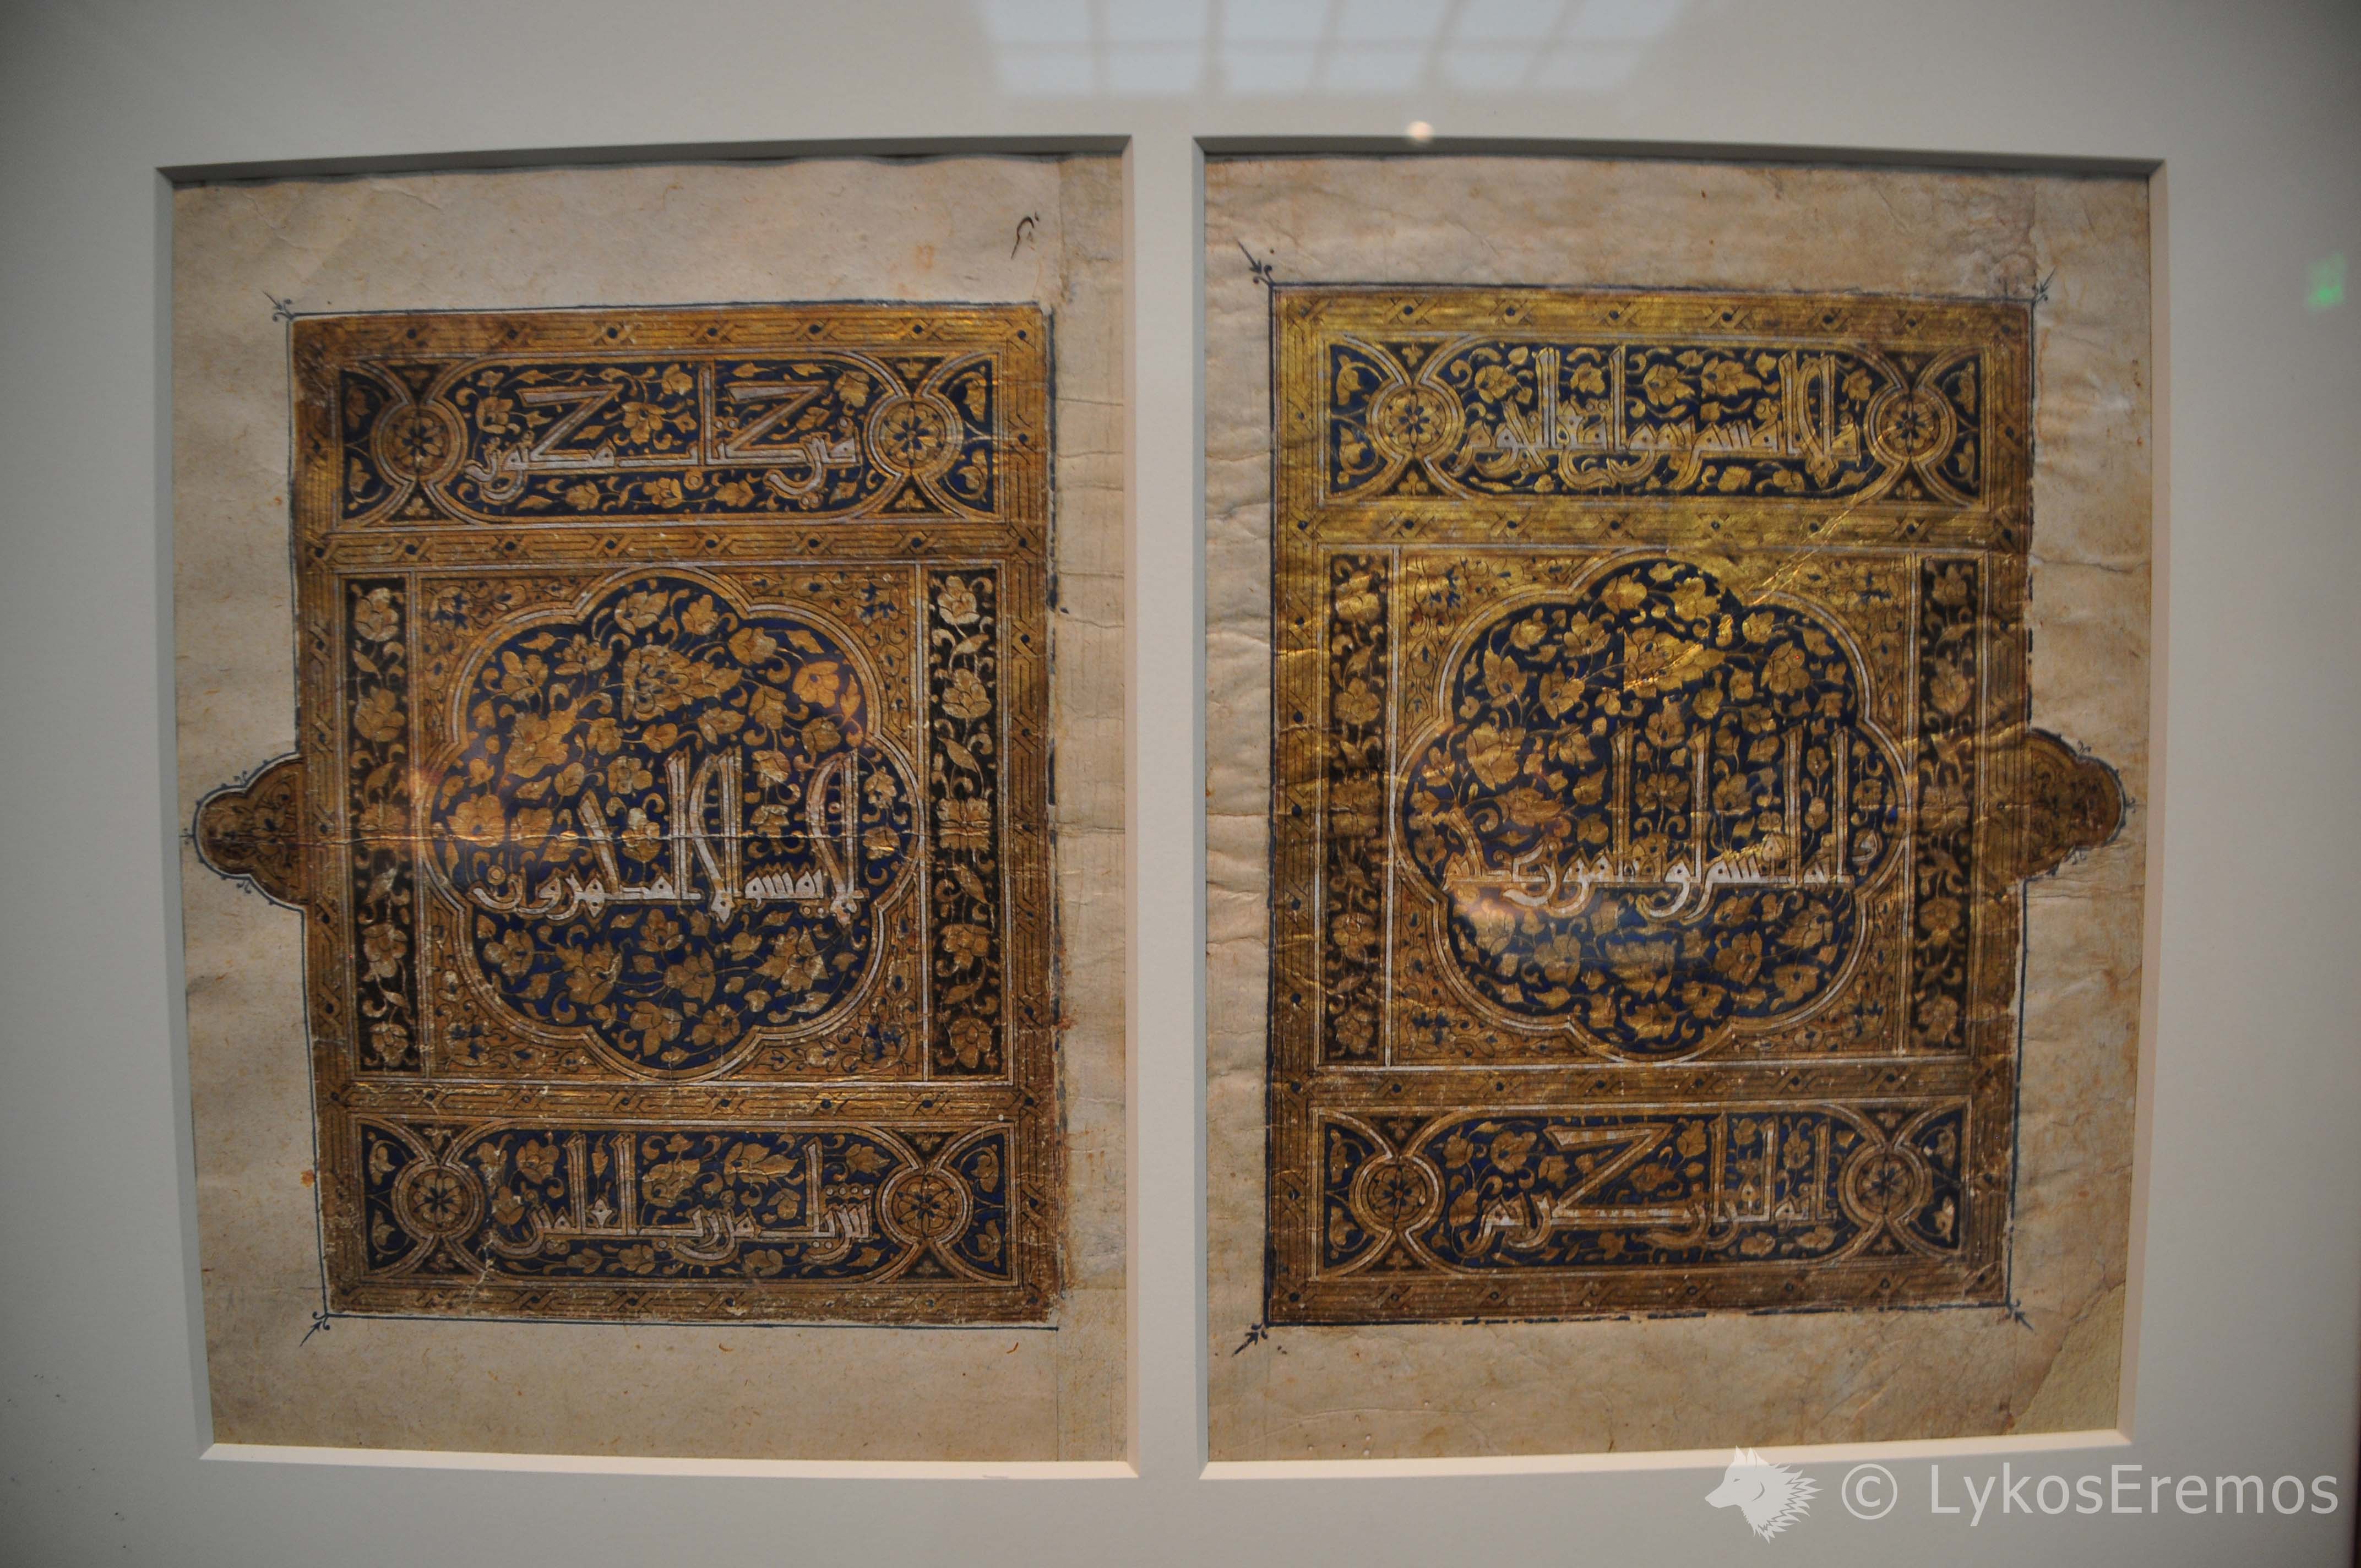 فلا اقسم بموقع النجوم
وانه لقسم لو تعلمون عظيم
انه لقران كريم
في كتاب مكنون
لا يمسه الا المطهرون
تنزيل من رب العلمين
© LykosEremos